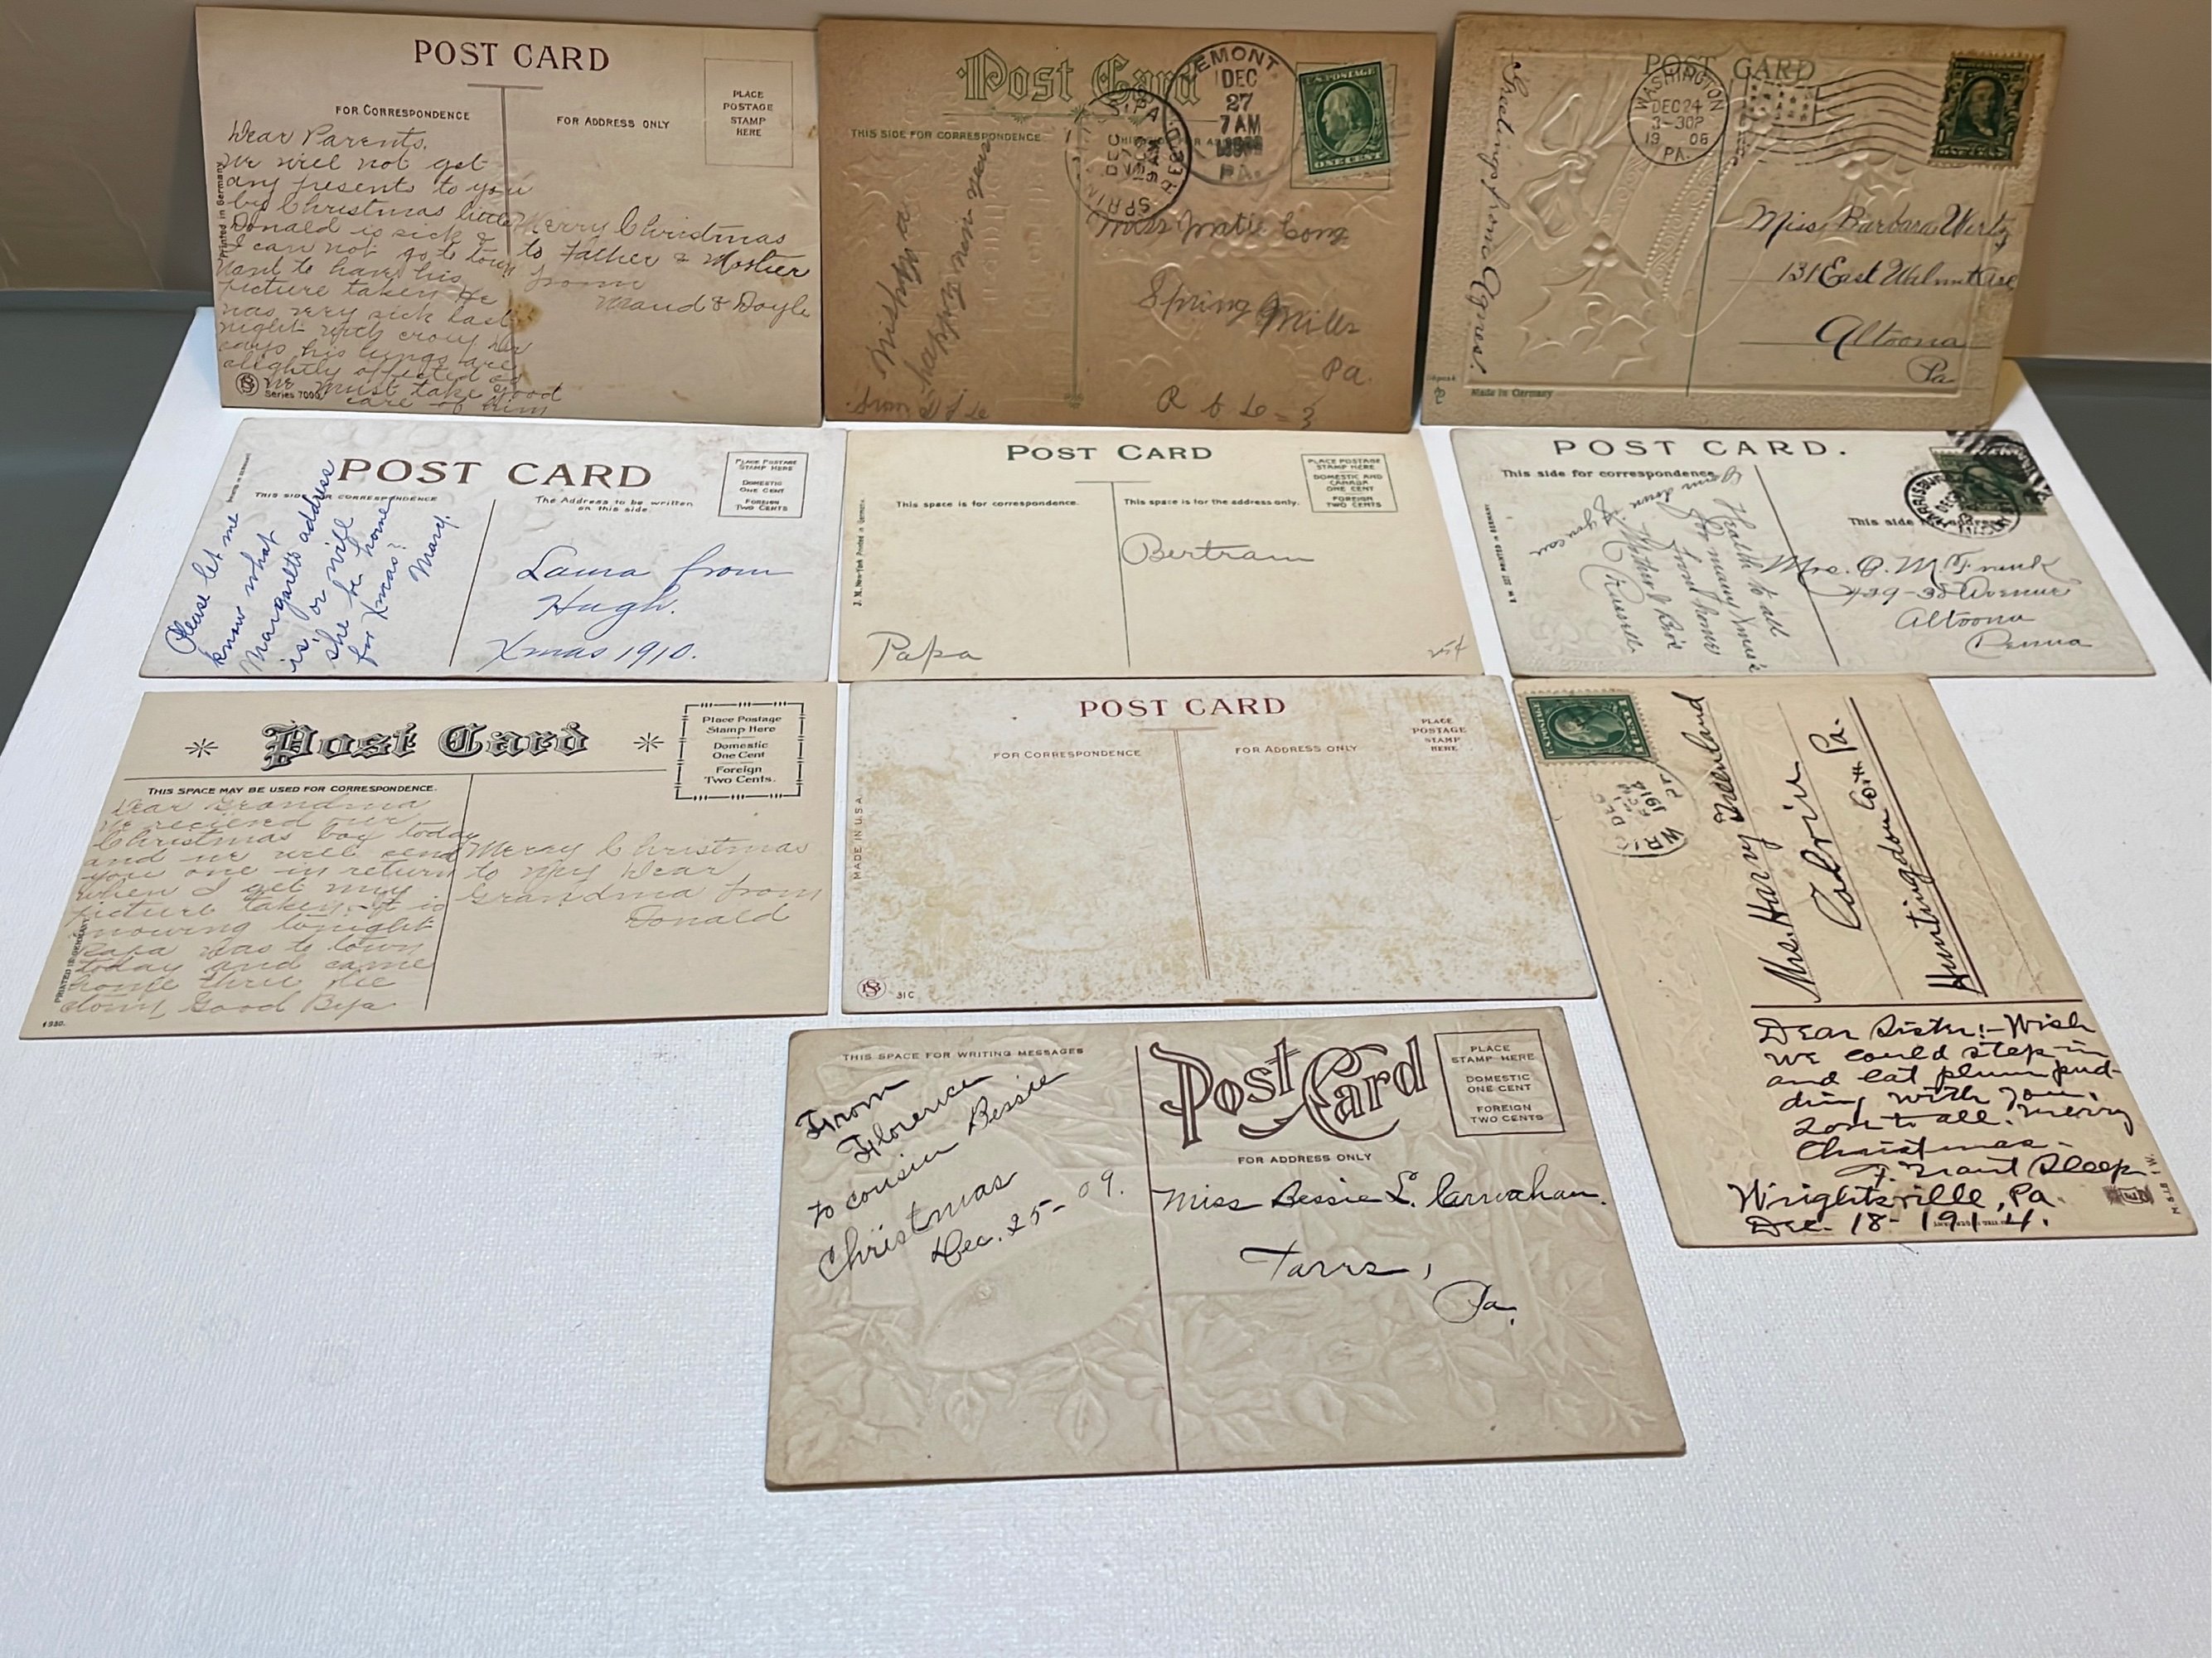 POST CARD
FOR CORRESPONDENCE
FOR ADDRESS ONLY
PLACE
POSTAGE
STAMP
HERE
Printed in Germany
Dear Parents.
We will not get
any present to you
by Christmas little
Donald is sick &
I can not go to town
Want to have his
picture taken He
was very sick last
night with croup Dr
says his lungs are
slightly affected so
we must take good
care of him
Merry Christmas
to Father & Mother
from
Maud & Doyle
Series 7000
Post Card
THIS SIDE FOR CORRESPONDENCE
DEC
27
7 AM
PA.
U.S. POSTAGE
ONE CENT
happy new year
Miss
Spring Mills
Pa.
from
POST CARD
WASHINGTON
DEC 24
3-30P
19 06
PA.
Greetings from Agnes!
Miss Barbara Wertz
131 East Walnut Ave
Altoona
Pa
Made in Germany
POST CARD
THIS SIDE FOR CORRESPONDENCE
The Address to be written
on this side.
PLACE POSTAGE
STAMP HERE
DOMESTIC
ONE CENT
FOREIGN
TWO CENTS
Please let me
know what
Margaret's address
is, or will
she be home
for Xmas?
Mary.
Laura from
Hugh.
Xmas 1910.
POST CARD
This space is for correspondence.
This space is for the address only.
PLACE POSTAGE
STAMP HERE
DOMESTIC AND
CANADA
ONE CENT
FOREIGN
TWO CENTS
J. M. New-York Printed in Germany
Bertram
Papa
25¢
POST CARD.
This side for correspondence
This side
HARRISBURG
DEC
Health to all
for many Xmas's
from home
Mother & Bro
Russell
Mrs.
Avenue
Altoona
Penna
Post Card
Place Postage
Stamp Here
Domestic
One Cent
Foreign
Two Cents.
THIS SPACE MAY BE USED FOR CORRESPONDENCE.
PRINTED IN GERMANY
Dear Grandma
We recieved our
Christmas box today
and we will send
you one in return
when I get my
picture taken. It is
snowing tonight
Papa was to town
today and came
home thru the
storm, Good Bye
Merry Christmas
to My Dear
Grandma from
Donald
POST CARD
FOR CORRESPONDENCE
FOR ADDRESS ONLY
PLACE
POSTAGE
STAMP
HERE
MADE IN U.S.A.
31 C
DEC
1914
Mrs. Harry Greenland
Calvin
Huntingdon Co. Pa.
Dear Sister:- Wish
we could step in
and eat plum pud-
ding with you.
Love to all. Merry
Christmas-
F. Grant Sleep
Wrightsville, Pa.
Dec. 18- 1914.
THIS SPACE FOR WRITING MESSAGES
Post Card
FOR ADDRESS ONLY
PLACE
STAMP HERE
DOMESTIC
ONE CENT
FOREIGN
TWO CENTS
From
Florence
to cousin Bessie
Christmas
Dec. 25- 09.
Miss Bessie L. Carnahan.
Tarrs,
Pa.